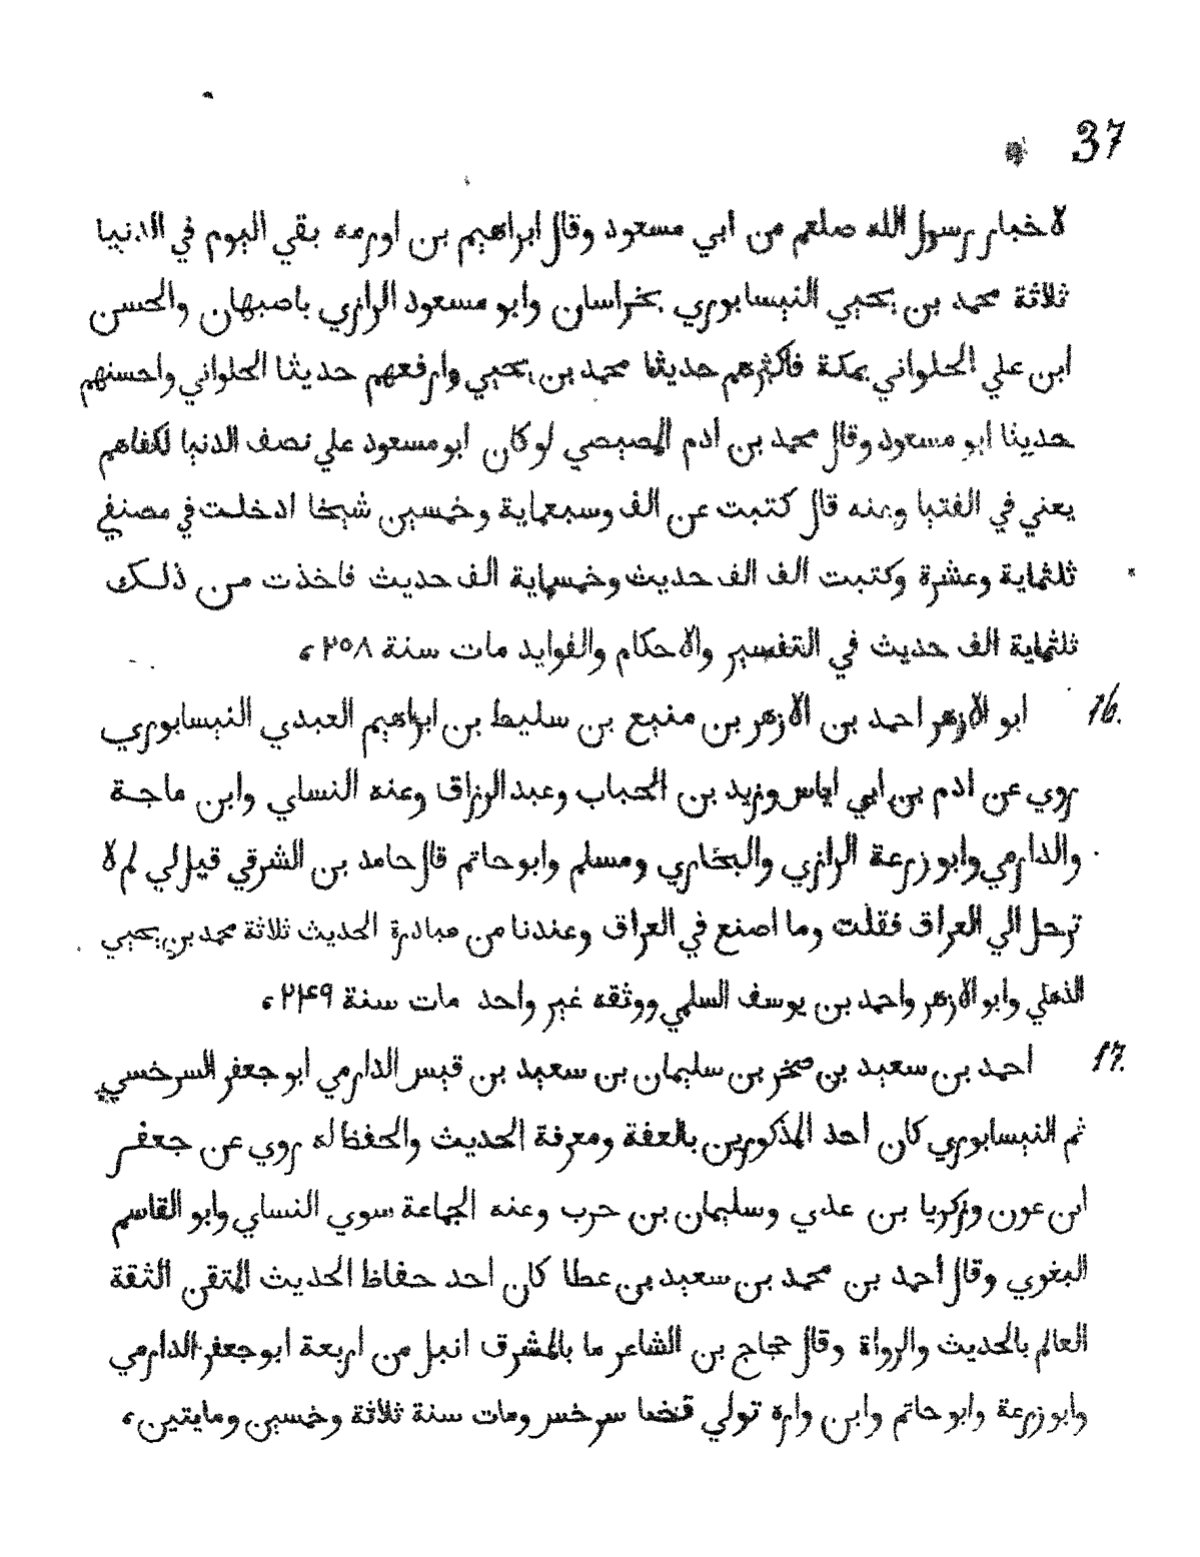 37
لاخبار رسول الله صلعم من ابي مسعود وقال ابراهيم بن اورمه بقي اليوم في الدنيا
ثلاثة محمد بن يحيي النيسابوري بخراسان وابو مسعود الرازي باصبهان والحسن
ابن علي الحلواني بمكة فاكثرهم حديثا محمد بن يحيي وارفعهم حديثا الحلواني واحسنهم
حديثا ابو مسعود وقال محمد بن ادم المصيصي لو كان ابو مسعود علي نصف الدنيا لكفاهم
يعني في الفتيا وعنه قال كتبت عن الف وسبعماية وخمسين شيخا ادخلت في مصنفي
ثلثماية وعشرة وكتبت الف الف حديث وخمسماية الف حديث فاخذت من ذلك
ثلثماية الف حديث في التفسير والاحكام والفوايد مات سنة ٢٥٨،
16. ابو الازهر احمد بن الازهر بن منيع بن سليط بن ابراهيم العبدي النيسابوري
روي عن ادم بن ابي اياس وزيد بن الحباب وعبد الرزاق وعنه النساي وابن ماجة
والدارمي وابو زرعة الرازي والبخاري ومسلم وابو حاتم قال حامد بن الشرقي قيل لي لم لا
ترحل الي العراق فقلت وما اصنع في العراق وعندنا من مبادرة الحديث ثلاثة محمد بن يحيي
الذهلي وابو الازهر واحمد بن يوسف السلمي ووثقه غير واحد مات سنة ٢٤٩،
17. احمد بن سعيد بن صخر بن سليمان بن سعيد بن قيس الدارمي ابو جعفر السرخسي
ثم النيسابوري كان احد المذكورين بالعفة ومعرفة الحديث والحفظ له روي عن جعفر
ابن عون وزكريا بن عدي وسليمان بن حرب وعنه الجماعة سوي النساي وابو القاسم
البغوي وقال أحمد بن محمد بن سعيد بن عطا كان احد حفاظ الحديث المتقن الثقة
العالم بالحديث والرواة وقال حجاج بن الشاعر ما بالمشرق انبل من اربعة ابو جعفر الدارمي
وابو زرعة وابو حاتم وابن واره تولي قضا سرخس ومات سنة ثلاثة وخمسين ومايتين،